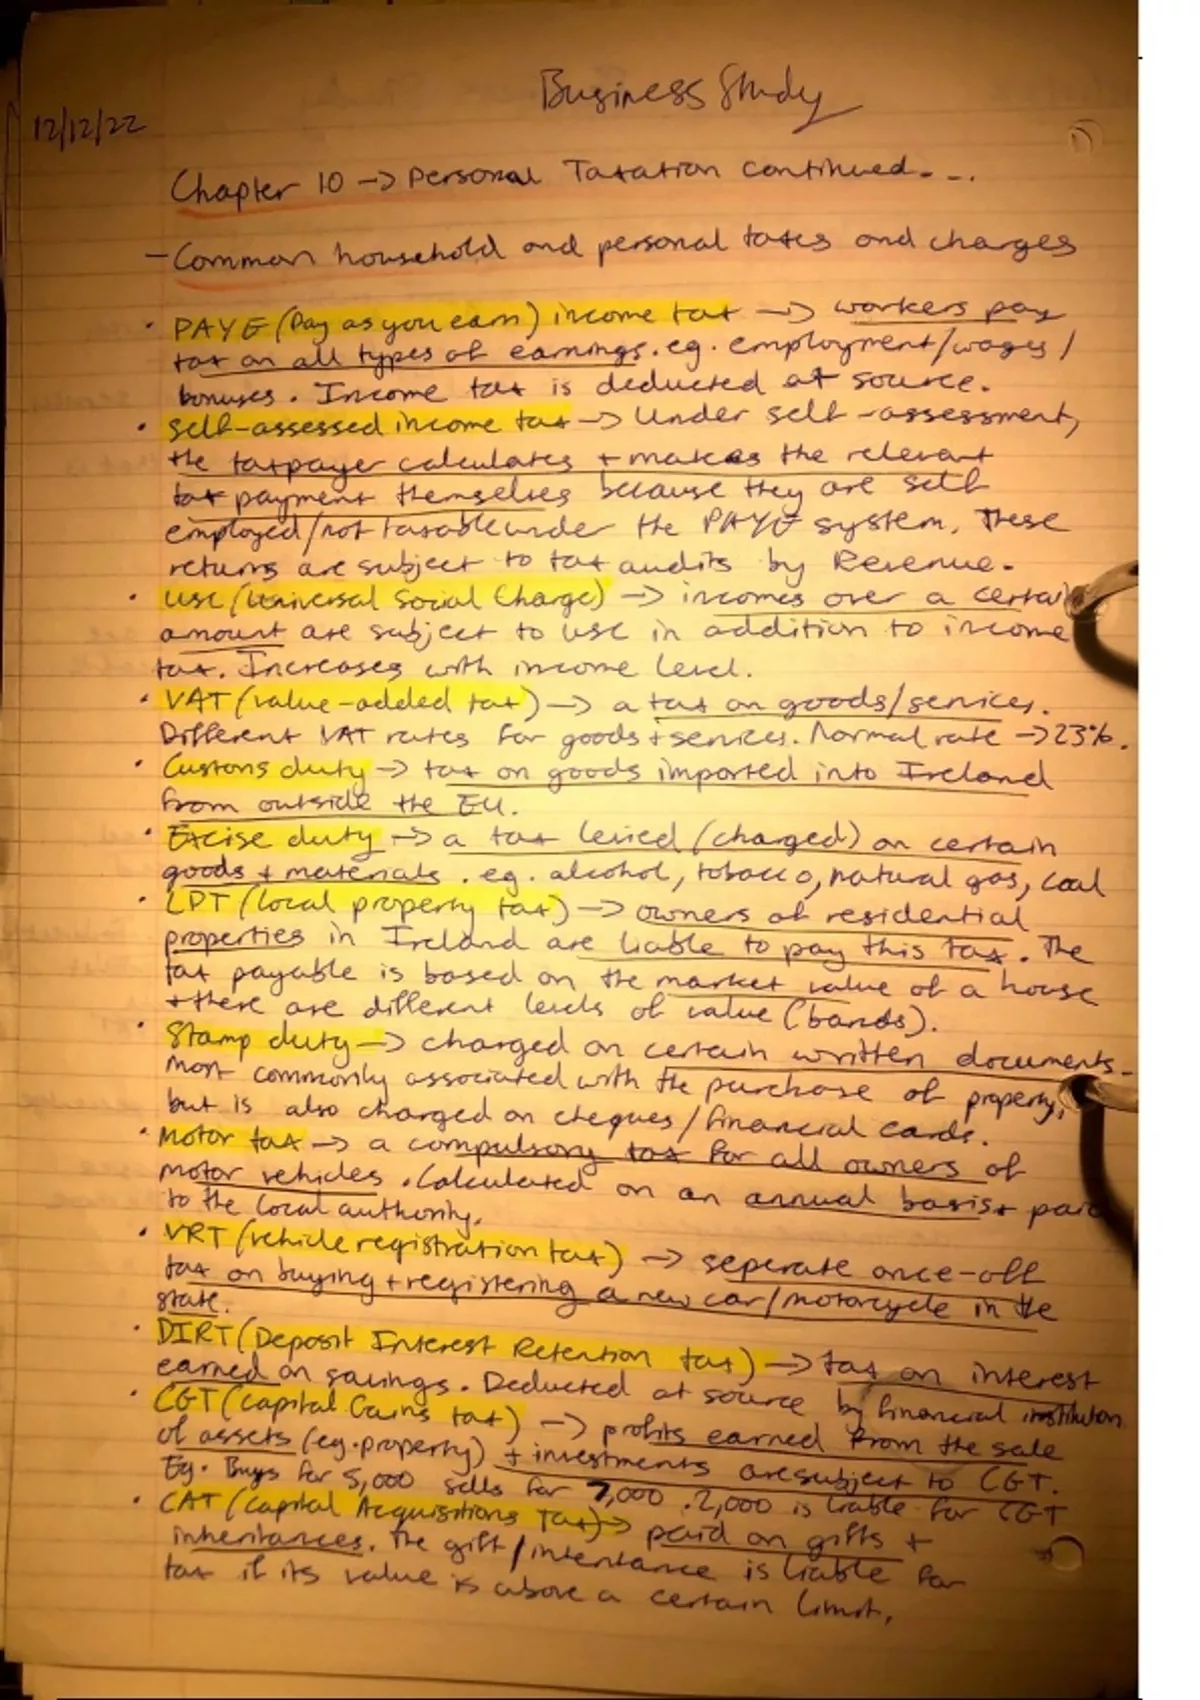 Business Study
12/12/22
Chapter 10 -> Personal Taxation continued...
- Common household and personal taxes and charges
• PAYE (Pay as you earn) income tax -> workers pay
tax on all types of earnings. eg. employment/wages/
bonuses. Income tax is deducted at source.
• Self-assessed income tax -> Under self-assessment,
the taxpayer calculates + makes the relevant
tax payment themselves because they are self
employed/not taxable under the PAYE system. These
returns are subject to tax audits by Revenue.
• USC (Universal Social Charge) -> incomes over a certain
amount are subject to USC in addition to income
tax. Increases with income level.
• VAT (value-added tax) -> a tax on goods/services.
Different VAT rates for goods + services. Normal rate -> 23%.
• Customs duty -> tax on goods imported into Ireland
from outside the EU.
• Excise duty -> a tax levied (charged) on certain
goods + materials. eg. alcohol, tobacco, natural gas, coal
• LPT (local property tax) -> owners of residential
properties in Ireland are liable to pay this tax. The
tax payable is based on the market value of a house
+ there are different levels of value (bands).
• Stamp duty -> charged on certain written documents.
Most commonly associated with the purchase of property,
but is also charged on cheques/financial cards.
• Motor tax -> a compulsory tax for all owners of
motor vehicles. Calculated on an annual basis + paid
to the local authority.
• VRT (vehicle registration tax) -> seperate once-off
tax on buying + registering a new car/motorcycle in the
state.
• DIRT (Deposit Interest Retention tax) -> tax on interest
earned on savings. Deducted at source by financial institution
• CGT (Capital Gains tax) -> profits earned from the sale
of assets (eg. property) + investments are subject to CGT.
Eg. Buys for 5,000 sells for 7,000. 2,000 is liable for CGT
• CAT (Capital Acquisitions Tax) -> paid on gifts +
inheritances. The gift/inheritance is liable for
tax if its value is above a certain limit.